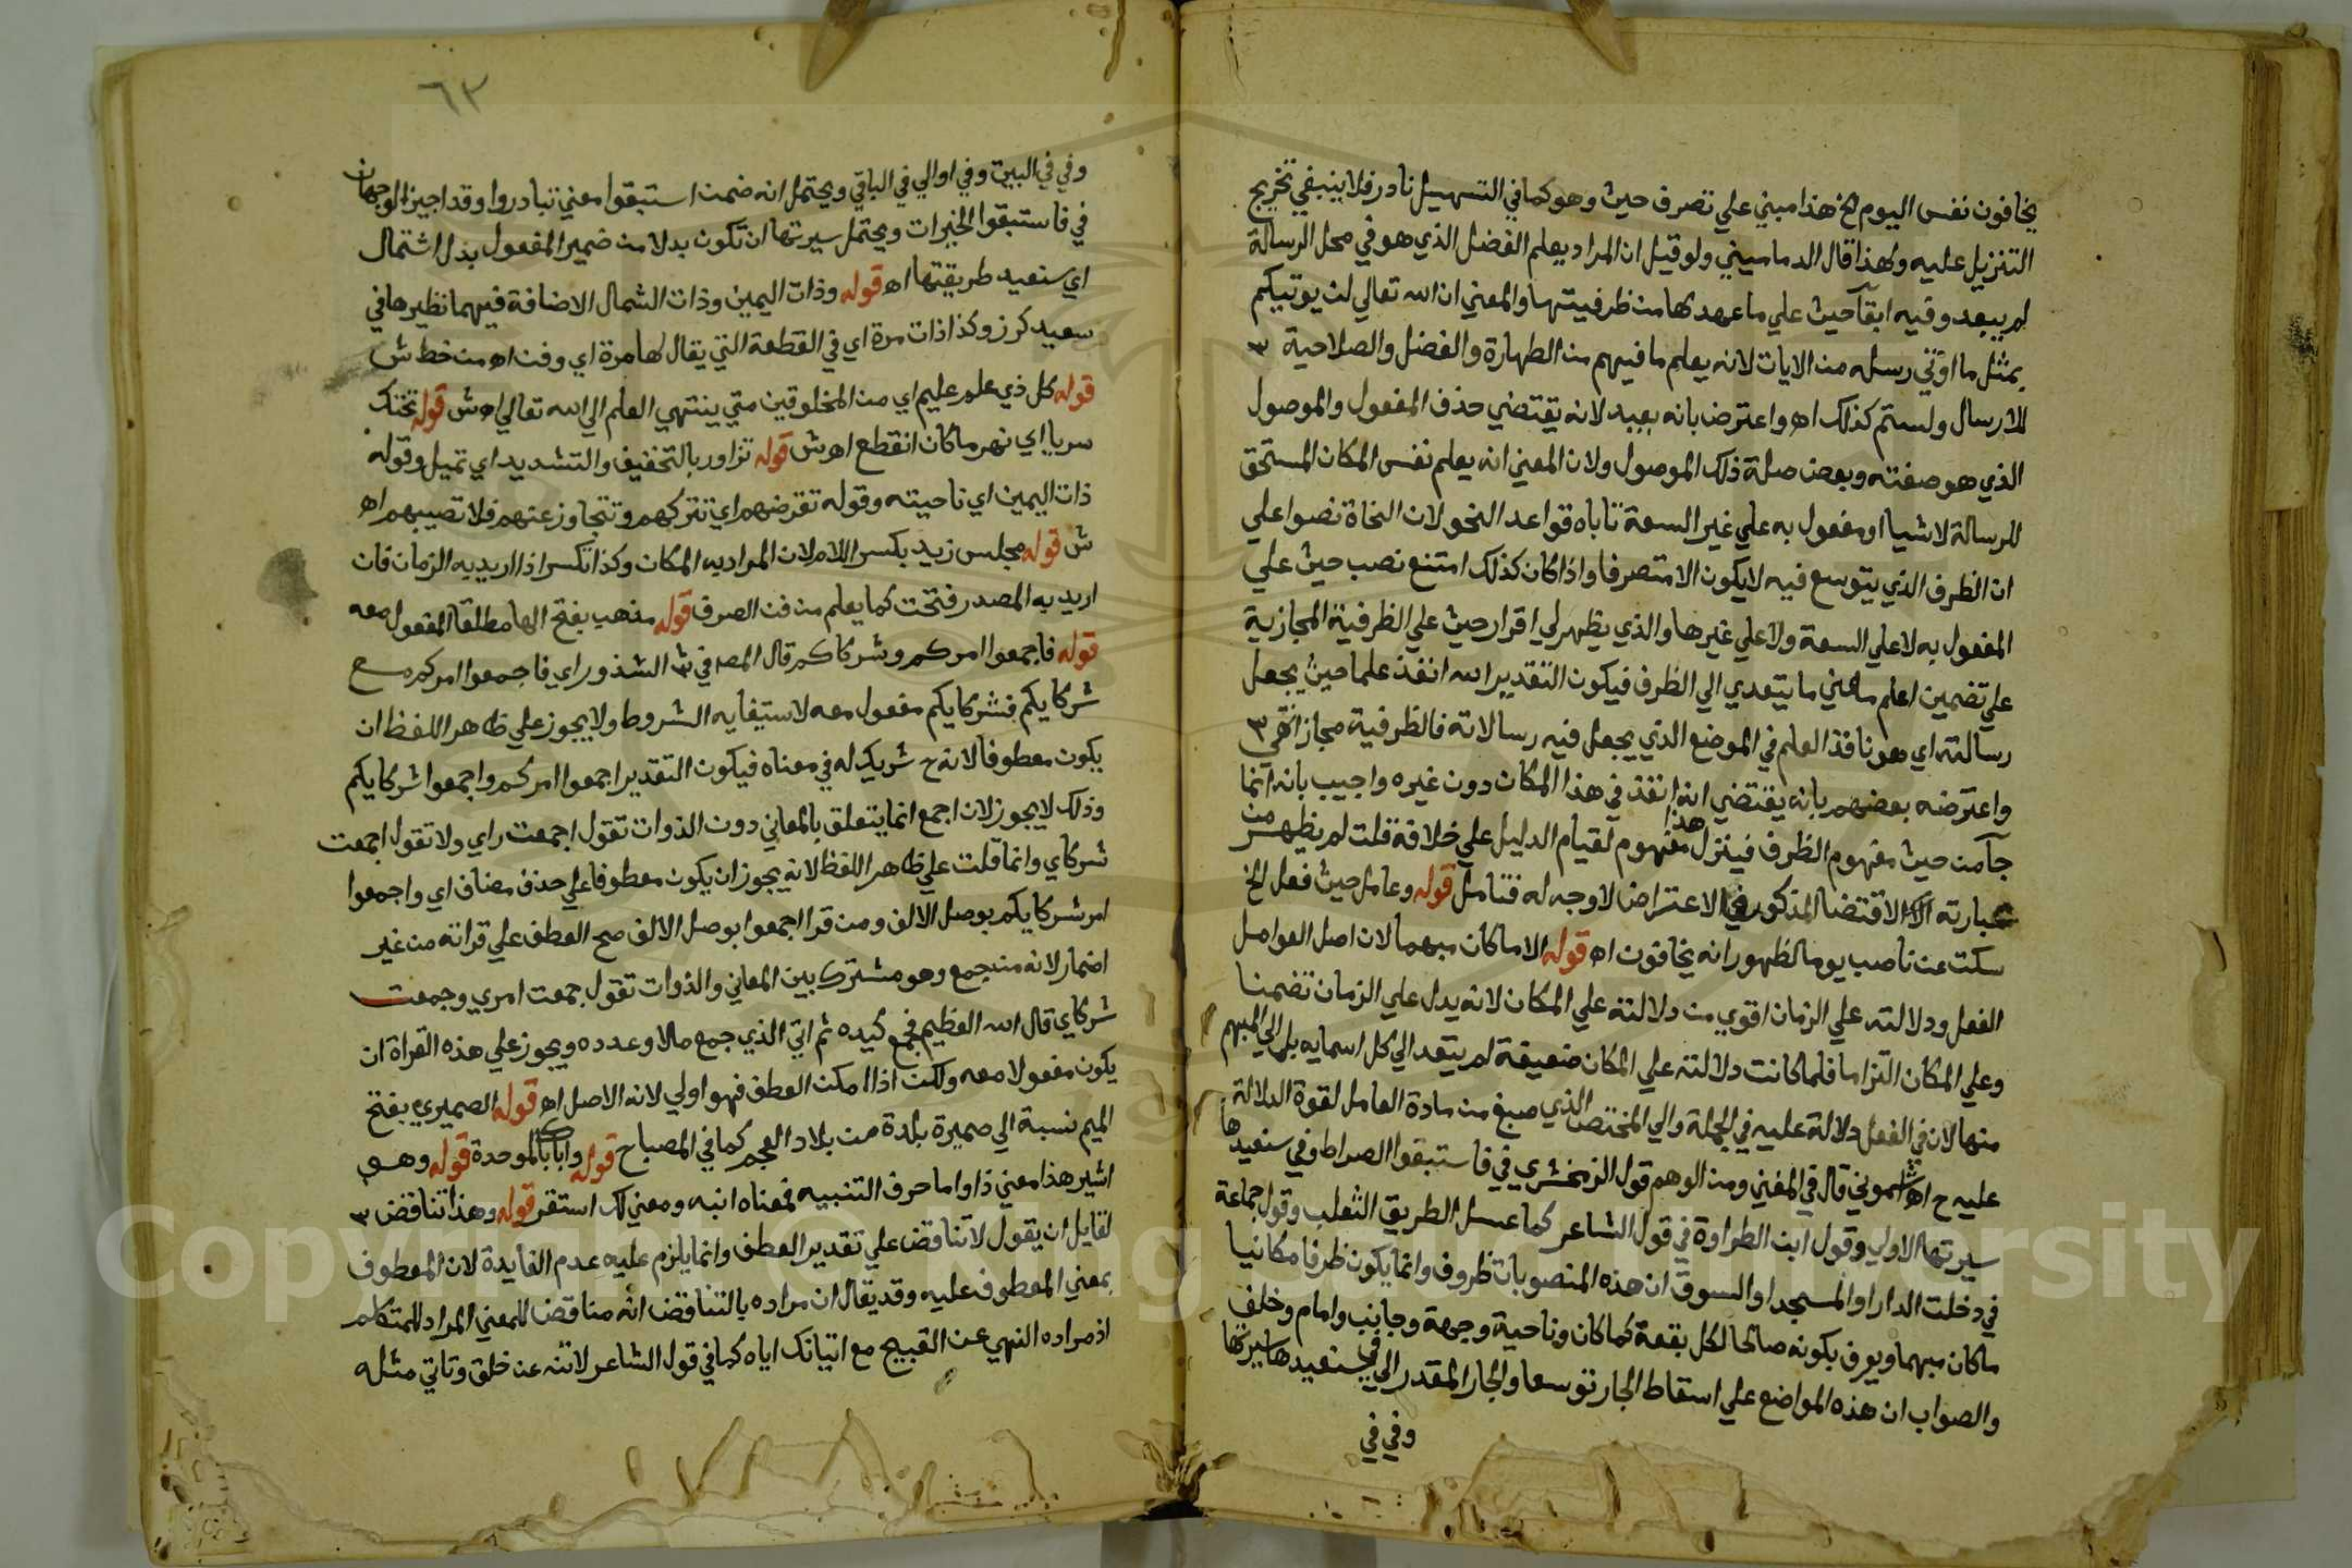 يخافون نفس اليوم الخ هذا مبني علي تصرف حيث وهو كما في التسهيل نادر فلا ينبغي تخريج
التنزيل عليه ولهذا قال الدماميني ولو قيل ان المراد يعلم الفضل الذي هو في محل الرسالة
لم يبعد وفيه ابقآ حيث علي ما عهد لها من ظرفيتها والمعني ان الله تعالي لن يوتيكم
بمثل ما اوتي رسله من الايات لانه يعلم ما فيهم من الطهارة والفضل والصلاحية ٣
للارسال ولستم كذلك اه واعترض بانه بعيد لانه يقتضي حذف المفعول والموصول
الذي هو صفته وبعض صلة ذلك الموصول ولان المعني انه يعلم نفس المكان المستحق
للرسالة لا شيا او مفعول به علي غير السعة تاباه قواعد النحو لان النحاة نصوا علي
ان الظرف الذي يتوسع فيه لا يكون الا متصرفا واذا كان كذلك امتنع نصب حيث علي
المفعول به لا علي السعة ولا علي غيرها والذي يظهر لي اقرار حيث علي الظرفية المجازية
علي تضمين اعلم معني ما يتعدي الي الظرف فيكون التقدير الله انفذ علما حيث يجعل
رسالته اي هو نافذ العلم في الموضع الذي يجعل فيه رسالاته فالظرفية مجاز انتهي ٣
واعترضه بعضهم بانه يقتضي انه انفذ في هذا المكان دون غيره واجيب بانه انما
جآ من حيث مفهوم الظرف فينزل هذا مفهوم لقيام الدليل علي خلافة قلت لم يظهر من
عبارته الاقتضا المذكور في الاعتراض لا وجه له فتامل قوله وعامل حيث فعل الخ
سكت عن ناصب يوما لظهور انه يخافون اه قوله الا ما كان مبهما لان اصل العوامل
الفعل ودلالته علي الزمان اقوي من دلالته علي المكان لانه يدل علي الزمان تضمنا
وعلي المكان التزاما فلما كانت دلالته علي المكان ضعيفة لم يتعد الي كل اسمايه بل الي المبهم
منها لان في الفعل دلالة عليه في الجملة والي المختص الذي صيغ من مادة العامل لقوة الدلالة
عليه ح اه اشموني قال في المغني ومن الوهم قول الزمخشري في فاستبقوا الصراط وفي سنعيدها
سيرتها الاولي وقول ابن الطراوة في قول الشاعر كما عسل الطريق الثعلب وقول جماعة
في دخلت الدار او المسجد او السوق ان هذه المنصوبات ظروف وانما يكون ظرفا مكانيا
ماكان مبهما ويعرف بكونه صالحا لكل بقعة كمكان وناحية وجهة وجانب وامام وخلف
والصواب ان هذه المواضع علي اسقاط الجار توسعا والجار المقدر الي في سنعيدها سيرتها
وفي في
٦٣
وفي في البيت وفي او الي في الباقي ويحتمل انه ضمن استبقوا معني تبادروا وقد اجيز الوجهان
في فاستبقوا الخيرات ويحتمل سيرتها ان تكون بدلا من ضمير المفعول بدل اشتمال
اي سنعيد طريقتها اه قوله وذات اليمين وذات الشمال الاضافة فيهما نظيرها في
سعيد كرز وكذا ذات مرة اي في القطعة التي يقال لها مرة اي وقت اه من خط ش
قوله كل ذي علم عليم اي من المخلوقين متي ينتهي العلم الي الله تعالي اه ش قوله تحتك
سريا اي نهر ما كان انقطع اه ش قوله تزاور بالتخفيف والتشديد اي تميل وقوله
ذات اليمين اي ناحيته وقوله تقرضهم اي تتركهم وتتجاوز عنهم فلا تصيبهم اه
ش قوله مجلس زيد بكسر اللام لان المراد به المكان وكذا تكسر اذا اريد به الزمان فان
اريد به المصدر فتحت كما يعلم من فن الصرف قوله مذهب بفتح الها مطلقا المفعول معه
قوله فاجمعوا امركم وشركاكم قال المص في ش الشذور اي فاجمعوا امركم مع
شركايكم فشركايكم مفعول معه لاستيفايه الشروط ولا يجوز علي ظاهر اللفظ ان
يكون معطوفا لانه ح شريك له في معناه فيكون التقدير اجمعوا امركم واجمعوا شركايكم
وذلك لا يجوز لان اجمع انما يتعلق بالمعاني دون الذوات تقول اجمعت راي ولا تقول اجمعت
شركاي وانما قلت علي ظاهر اللفظ لانه يجوز ان يكون معطوفا علي حذف مضاف اي واجمعوا
امر شركايكم بوصل الالف ومن قرا اجمعوا بوصل الالف صح العطف علي قراته من غير
اضمار لانه من جمع وهو مشترك بين المعاني والذوات تقول جمعت امري وجمعت
شركاي قال الله العظيم فجمع كيده ثم اتي الذي جمع مالا وعدده ويجوز علي هذه القراة ان
يكون مفعولا معه ولكن اذا امكن العطف فهو اولي لانه الاصل اه قوله الصميري بفتح
الميم نسبة الي صميرة بلدة من بلاد العجم كما في المصباح قوله واباك بالموحدة قوله وهو
اشير هذا معني ذا واما حرف التنبيه فمعناه انبه ومعني لك استقر قوله وهذا تناقض ٣
لقايل ان يقول لا تناقض علي تقدير العطف وانما يلزم عليه عدم الفايدة لان المعطوف
بمعني المعطوف عليه وقد يقال ان مراده بالتناقض انه مناقض للمعني المراد للمتكلم
اذ مراده النهي عن القبيح مع اتيانك اياه كما في قول الشاعر لا تنه عن خلق وتاتي مثله